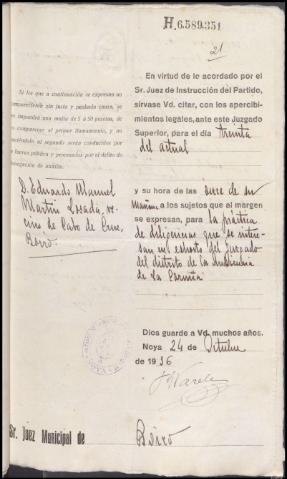 H.6.589.351
21
Si los que a continuación se expresan no
compareciesen sin justa y probada causa, se
les impondrá una multa de 5 a 50 pesetas, de
no comparecer al primer llamamiento, y no
verificándolo al segundo serán conducidos por
la fuerza pública y procesados por el delito de
denegación de auxilio.
D. Eduardo Manuel
Martín Losada, ve-
cino de Cabo de Cruz,
Boiro
En virtud de lo acordado por el
Sr. Juez de Instrucción del Partido,
sírvase Vd. citar, con los apercibi-
mientos legales, ante este Juzgado
Superior, para el día treinta
del actual
y su hora de las once de su
mañana a los sujetos que al margen
se expresan, para la práctica
de diligencias que se intere-
san en exhorto del Juzgado
del distrito de la Audiencia
de La Coruña
Dios guarde a Vd. muchos años.
Noya 24 de Octubre
de 1936
Varela
Sr. Juez Municipal de Boiro